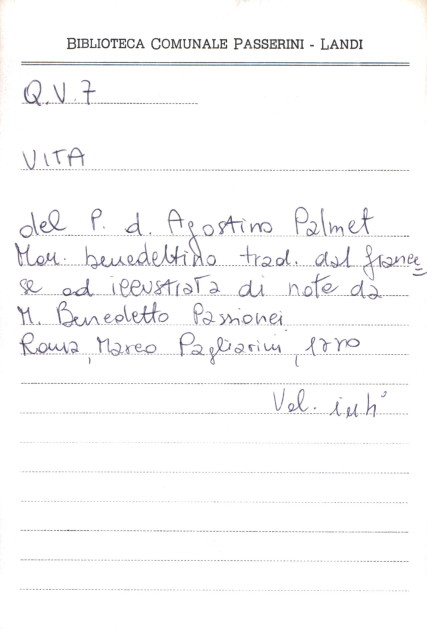 BIBLIOTECA COMUNALE PASSERINI - LANDI
Q.V.7
VITA
del P. d. Agostino Palmet
Mon. benedettino trad. dal france=
se ed illustrata di note da
M. Benedetto Passionei
Roma, Marco Pagliarini, 1770
Vol.